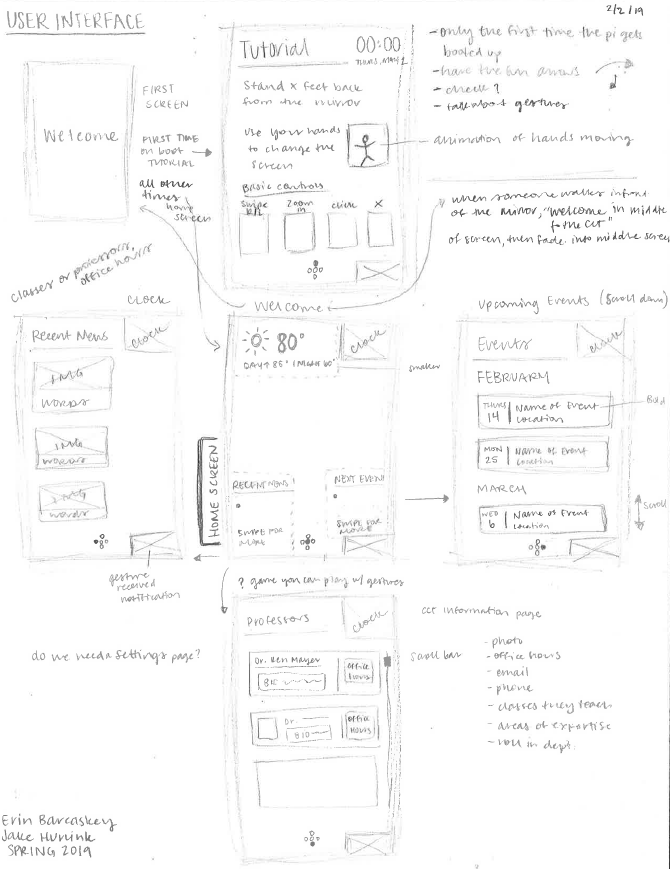 USER INTERFACE
2/2/19
Welcome
FIRST
SCREEN
FIRST TIME
ON BOOT
TUTORIAL
all other
times
home
screen
Tutorial
00:00
THURS, MAY 2
Stand X feet back
from the mirror
use your hands
to change the
screen
Basic controls
Swipe
Zoom
in
click
X
- only the first time the pi gets
booted up
- have the fun arrows
- check?
- talk about gestures
animation of hands moving
when someone walks infront
of the mirror, "welcome in middle
to the CCT"
of screen, then fade into middle screen
classes or professors,
office hours
CLOCK
Recent News
CLOCK
IMG
words
IMG
words
IMG
words
gesture
received
notification
Welcome
80°
DAY↑ 85°
CLOCK
smaller
HOME SCREEN
RECENT NEWS
SWIPE FOR
MORE
NEXT EVENT
SWIPE FOR
MORE
Upcoming Events (Scroll down)
Events
Clock
FEBRUARY
THURS
14
Name of Event
Location
Bold
MON
25
Name of Event
Location
MARCH
WED
6
Name of Event
Location
Scroll
? game you can play w/ gestures
Professors
CLOCK
Dr. Ben Mayer
810
OFFICE
HOURS
Dr.
810
OFFICE
HOURS
do we need a settings page?
CCT information page
Scroll bar
- photo
- office hours
- email
- phone
- classes they teach
- areas of expertise
- roll in dept.
Erin Barcaskey
Jake Hunink
SPRING 2019